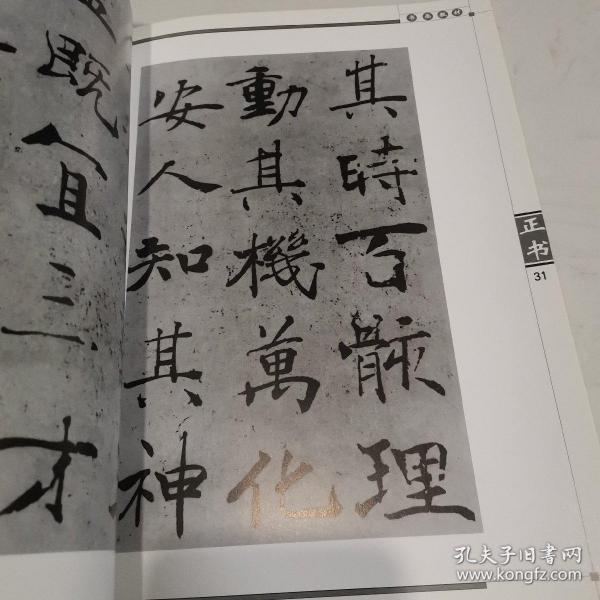 其時百骸理
動其機萬化
安人知其神
既宜三才
正书
31
孔夫子旧书网
www.kongfz.com